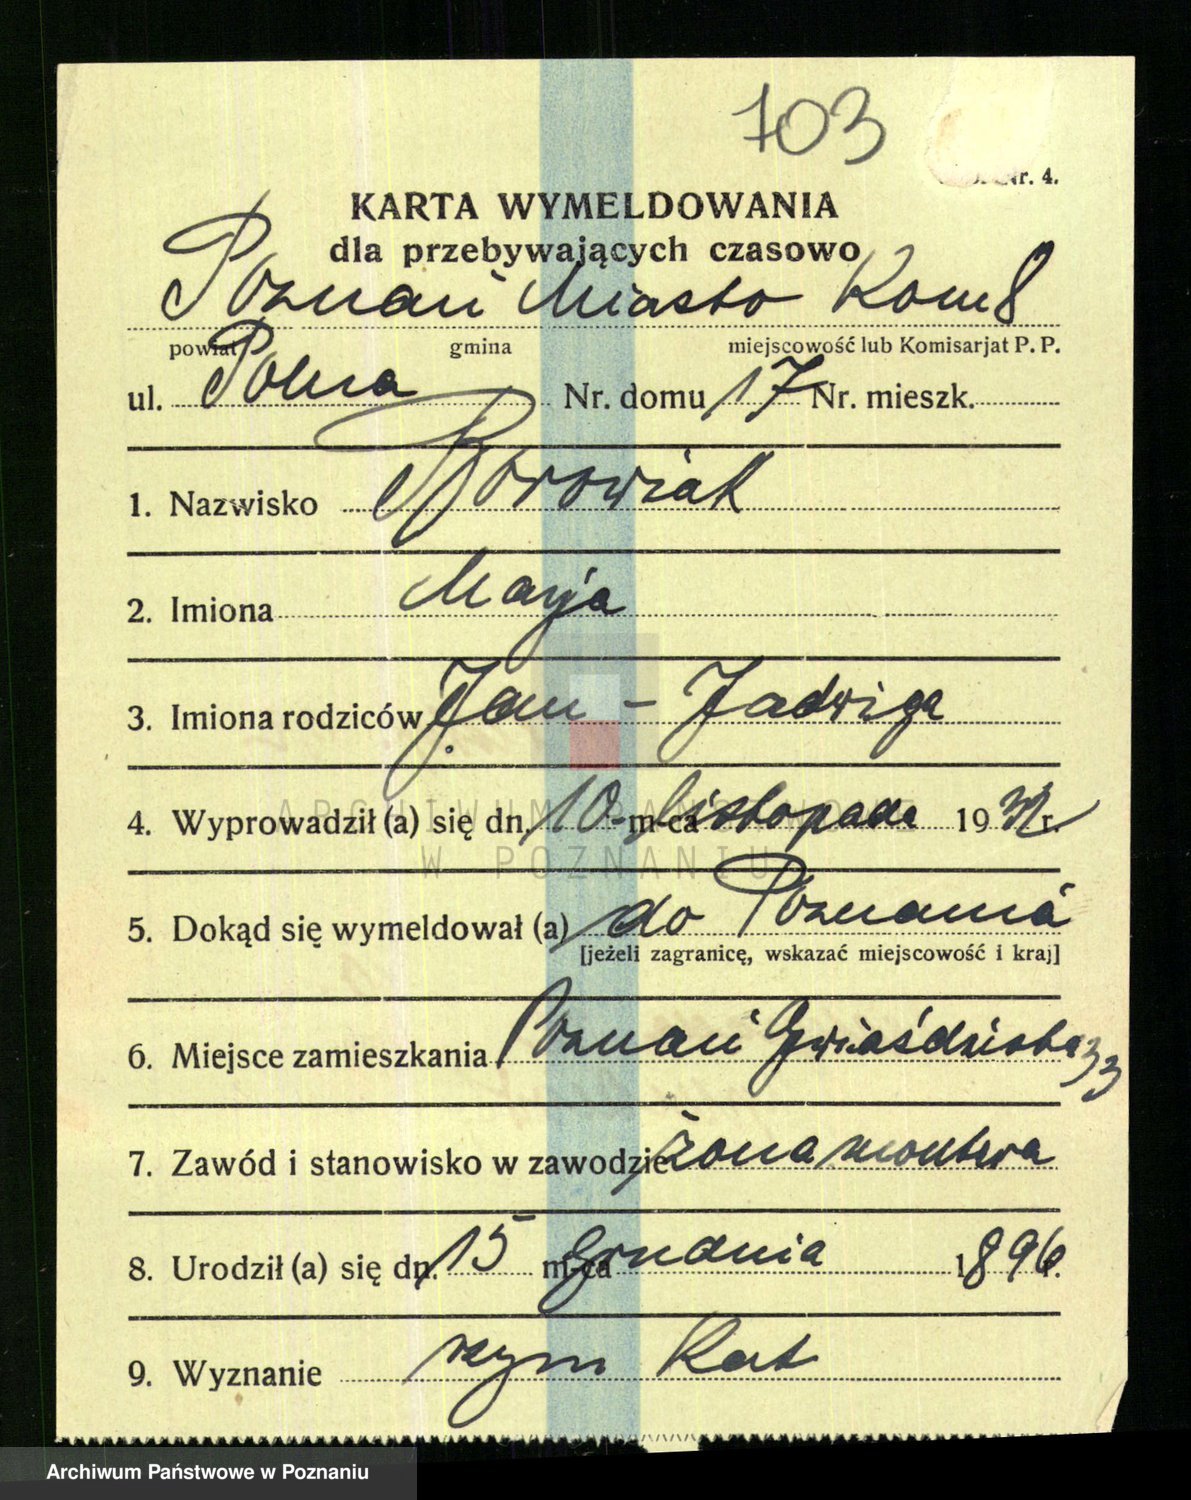 703
Nr. 4.
KARTA WYMELDOWANIA
dla przebywających czasowo
Poznań Miasto Kom 8
powiat gmina miejscowość lub Komisarjat P. P.
ul. Polna Nr. domu 17 Nr. mieszk.
1. Nazwisko Borowiak
2. Imiona Marja
3. Imiona rodziców Jan - Jadwiga
4. Wyprowadził (a) się dn. 10 m-ca listopada 19 r.
ARCHIWUM PAŃSTWOWE
W POZNANIU
5. Dokąd się wymeldował (a) do Poznania
[jeżeli zagranicę, wskazać miejscowość i kraj]
6. Miejsce zamieszkania Poznań 33
7. Zawód i stanowisko w zawodzie żona montera
8. Urodził (a) się dn. 15 m-ca Grudnia 1896 r.
9. Wyznanie rzym Kat
Archiwum Państwowe w Poznaniu